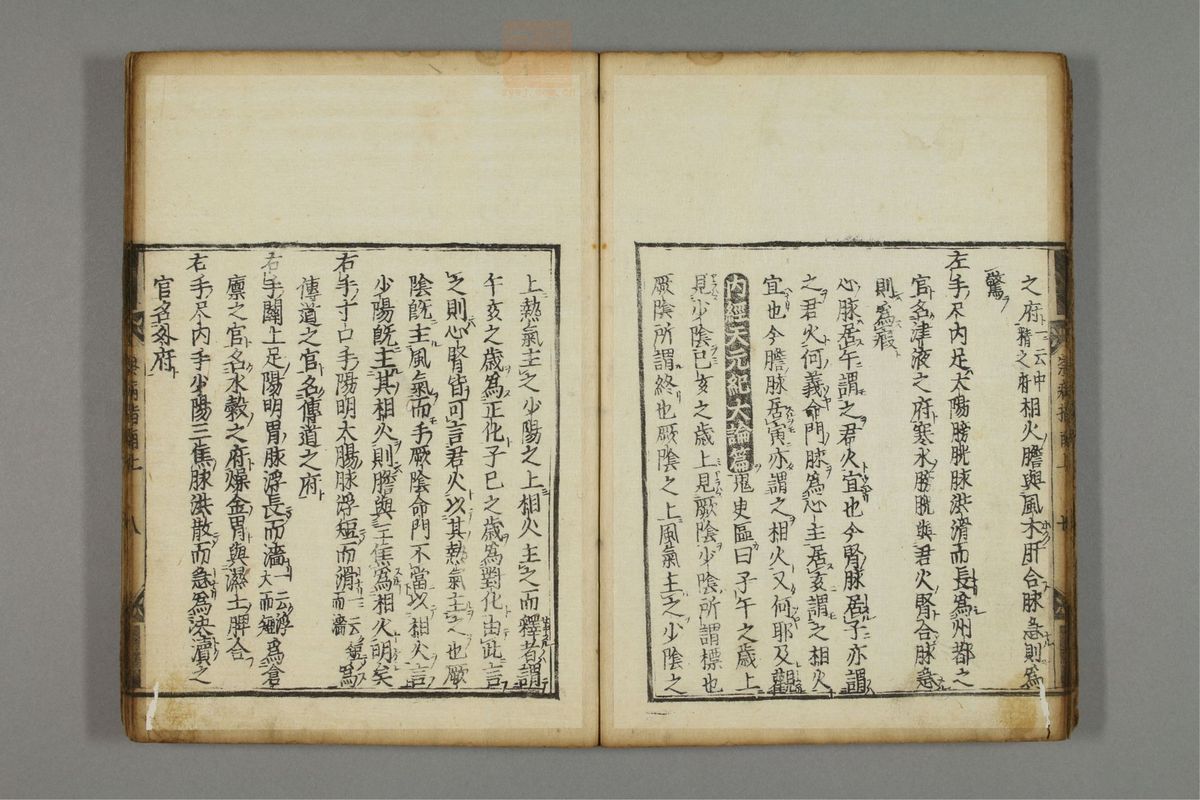 之府一云中精之府相火膽與風木肝合脉急則為
驚
左手尺內足太陽膀胱脉洪滑而長為州都之
官名津液之府寒水膀胱與君火腎合脉急
則為瘕
心脉居午謂之君火宜也今腎脉居子亦謂
之君火何義命門脉為心主居亥謂之相火
宜也今膽脉居寅亦謂之相火又何耶及觀
內經天元紀大論篇鬼臾區曰子午之歲上
見少陰巳亥之歲上見厥陰少陰所謂標也
厥陰所謂終也厥陰之上風氣主之少陰之
上熱氣主之少陽之上相火主之而釋者謂
午亥之歲為正化子巳之歲為對化由此言
之則心腎皆可言君火以其熱氣主之也厥
陰既主風氣而手厥陰命門不當以相火言
少陽既主其相火則膽與三焦為相火明矣
右手寸口手陽明大腸脉浮短而滑一云短而濇為
傳道之官名傳道之府
右手關上足陽明胃脉浮長而濇一云浮大而短為倉
廩之官名水穀之府燥金胃與濕土脾合
右手尺內手少陽三焦脉洪散而急為決瀆之
官名外府